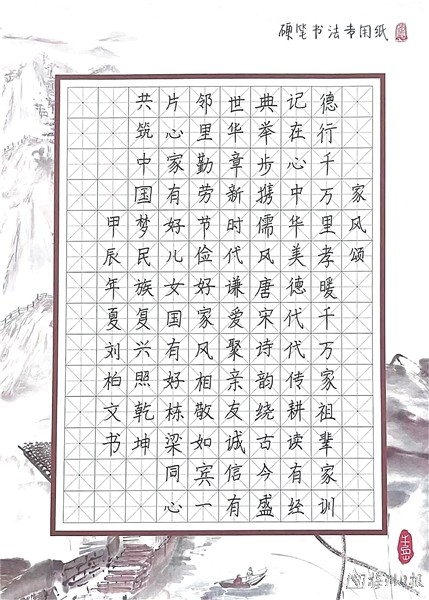 硬笔书法专用纸
家风颂
德行千万里孝暖千万家祖辈家训
记在心中华美德代代传耕读有经
典举步携儒风唐宋诗韵绕古今盛
世华章新时代谦爱聚亲友诚信有
邻里勤劳节俭好家风相敬如宾一
片心家有好儿女国有好栋梁同心
共筑中国梦民族复兴照乾坤
甲辰年夏刘柏文书
株洲日报